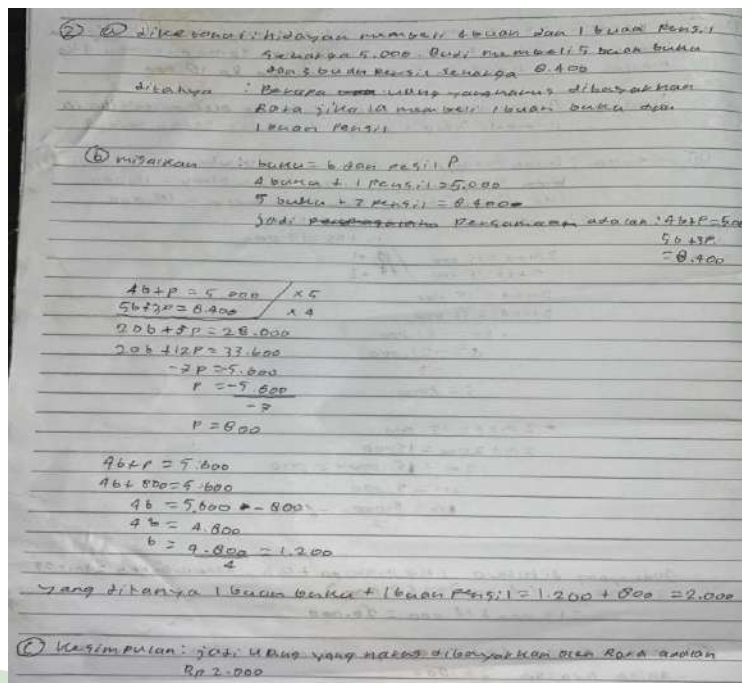 ② ⓐ diketahui: hidayah membeli 4 buah dan 1 buah Pensil
seharga 5.000. Budi membeli 5 buah buku
dan 3 buah Pensil seharga 8.400
ditanya : Berapa uang yang harus dibayarkan
Rara jika ia membeli 1 buah buku dan
1 buah Pensil
ⓑ misalkan : buku = b dan pesil P
4 buku + 1 Pensil = 5.000
5 buku + 3 pensil = 8.400
jadi Persamaan adalah : 4b+P=500
5b+3P
= 8.400
4b+P = 5.600 / x5
5b+3P = 8.400 / x4
20b + 5P = 28.000
20b + 12P = 33.600
-7P = -5.600
P = -5.600
-7
P = 800
4b+P = 5.600
4b+ 800 = 5.600
4b = 5.600 - 800
4b = 4.800
b = 4.800 = 1.200
4
yang ditanya 1 buah buku + 1 buah Pensil = 1.200 + 800 = 2.000
ⓒ Kesimpulan: jadi uang yang harus dibayarkan oleh Rara adalah
Rp 2.000